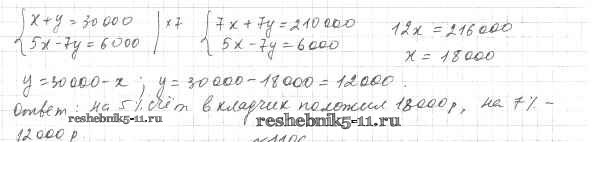 {x+y=30000 | ×7 {7x+7y=210000 12x=216000
{5x-7y=6000 | {5x-7y=6000 x=18000
y=30000-x; y=30000-18000=12000.
Ответ: на 5% счёт вкладчик положил 18000 р, на 7% -
12000 р.
reshebnik5-11.ru reshebnik5-11.ru